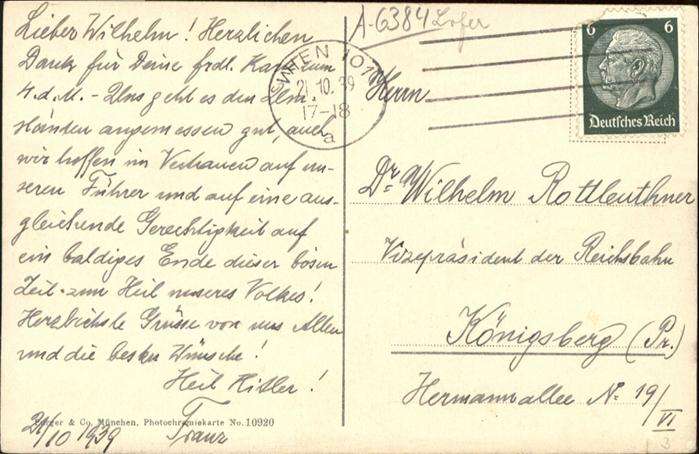 Lieber Wilhelm! Herzlichen
Dank für Deine frdl. Karte vom
4. d. M. - Uns geht es den Um-
ständen angemessen gut, auch
wir hoffen im Vertrauen auf un-
seren Führer und auf eine aus-
gleichende Gerechtigkeit auf
ein baldiges Ende dieser bösen
Zeit zum Heil unseres Volkes!
Herzlichste Grüsse von uns Allen
und die besten Wünsche!
Heil Hitler!
21/10 1939 Franz
& Co. München, Photochromiekarte No. 10920
A-6384 Lofer
WIEN 107
21.10.39
17-18
a
6 6
Deutsches Reich
Herrn
Dr. Wilhelm Rottleuthner
Vizepräsident der Reichsbahn
Königsberg (Pr.)
Hermannallee No 19/
VI